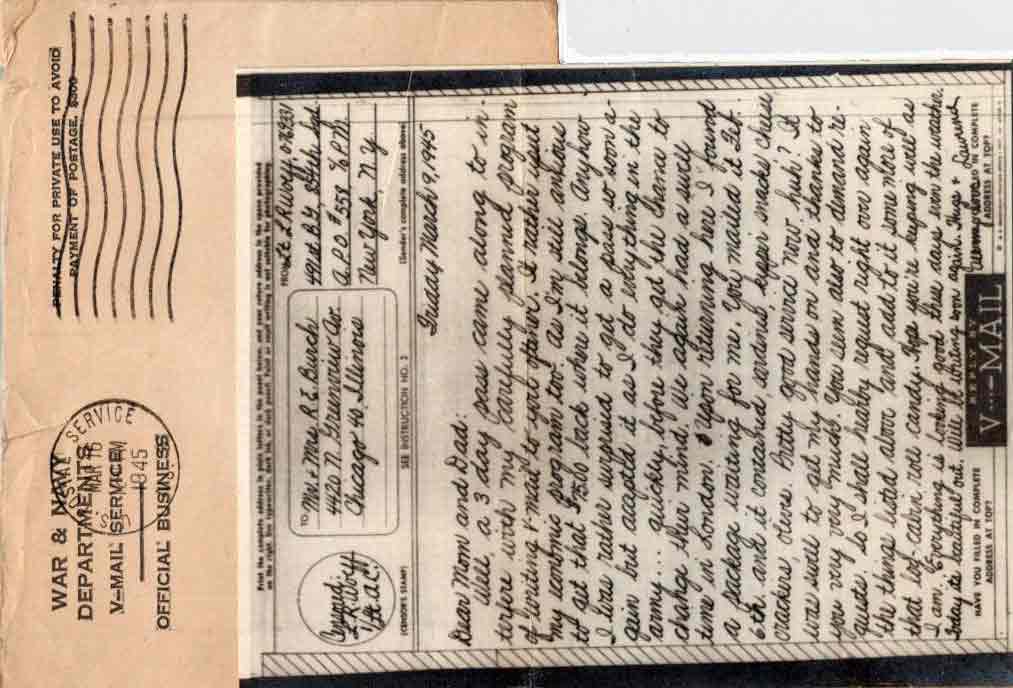 WAR & NAVY
DEPARTMENTS
V-MAIL SERVICE
OFFICIAL BUSINESS
SERVICE
MAR 16
PM
1945
PENALTY FOR PRIVATE USE TO AVOID
PAYMENT OF POSTAGE, $300
Print the complete address in plain letters in the panel below, and your return address in the space provided
on the right. Use typewriter, dark ink, or dark pencil. Faint or small writing is not suitable for photographing.
L R Wolff
1st Lt. A.C.
(CENSOR'S STAMP)
TO
Mr. & Mrs. R. E. Burch
4420 N. Greenview Ave.
Chicago 40, Illinois
SEE INSTRUCTION NO. 2
FROM
Lt. L R Wolff
491st B.G. 854th Sqd.
A.P.O. #558 % P.M.
New York, N.Y.
(Sender's complete address above)
Friday March 9, 1945
Dear Mom and Dad:
Well, a 3 day pass came along to in-
terfere with my carefully planned program
of writing V-mail to you often. It rather upset
my economic program too. As I'm still anxious
to get that $75.00 back where it belongs. Anyhow
I was rather suprised to get a pass so soon a-
gain but accept'd it as I do everything in the
army... quickly, before they get the chance to
change their mind. We again had a swell
time in London. Upon returning here I found
a package waiting for me. You mailed it Feb.
6th. and it contained sardines, kipper snacks, cheese
crackers, olives. Pretty good service now huh? It
was swell to get my hands on and thanks to
you very very much. You seem also to demand re-
quests. so I shall heally request right over again
the things listed above and add to it some more of
that log cabin roll candy. Hope you're keeping well as
I am. Everything is looking good these days even the weather.
Today its beautiful out. Will be writing soon again. Hugs &
HAVE YOU FILLED IN COMPLETE
ADDRESS AT TOP?
REPLY BY
V···—MAIL
HAVE YOU FILLED IN COMPLETE
ADDRESS AT TOP?